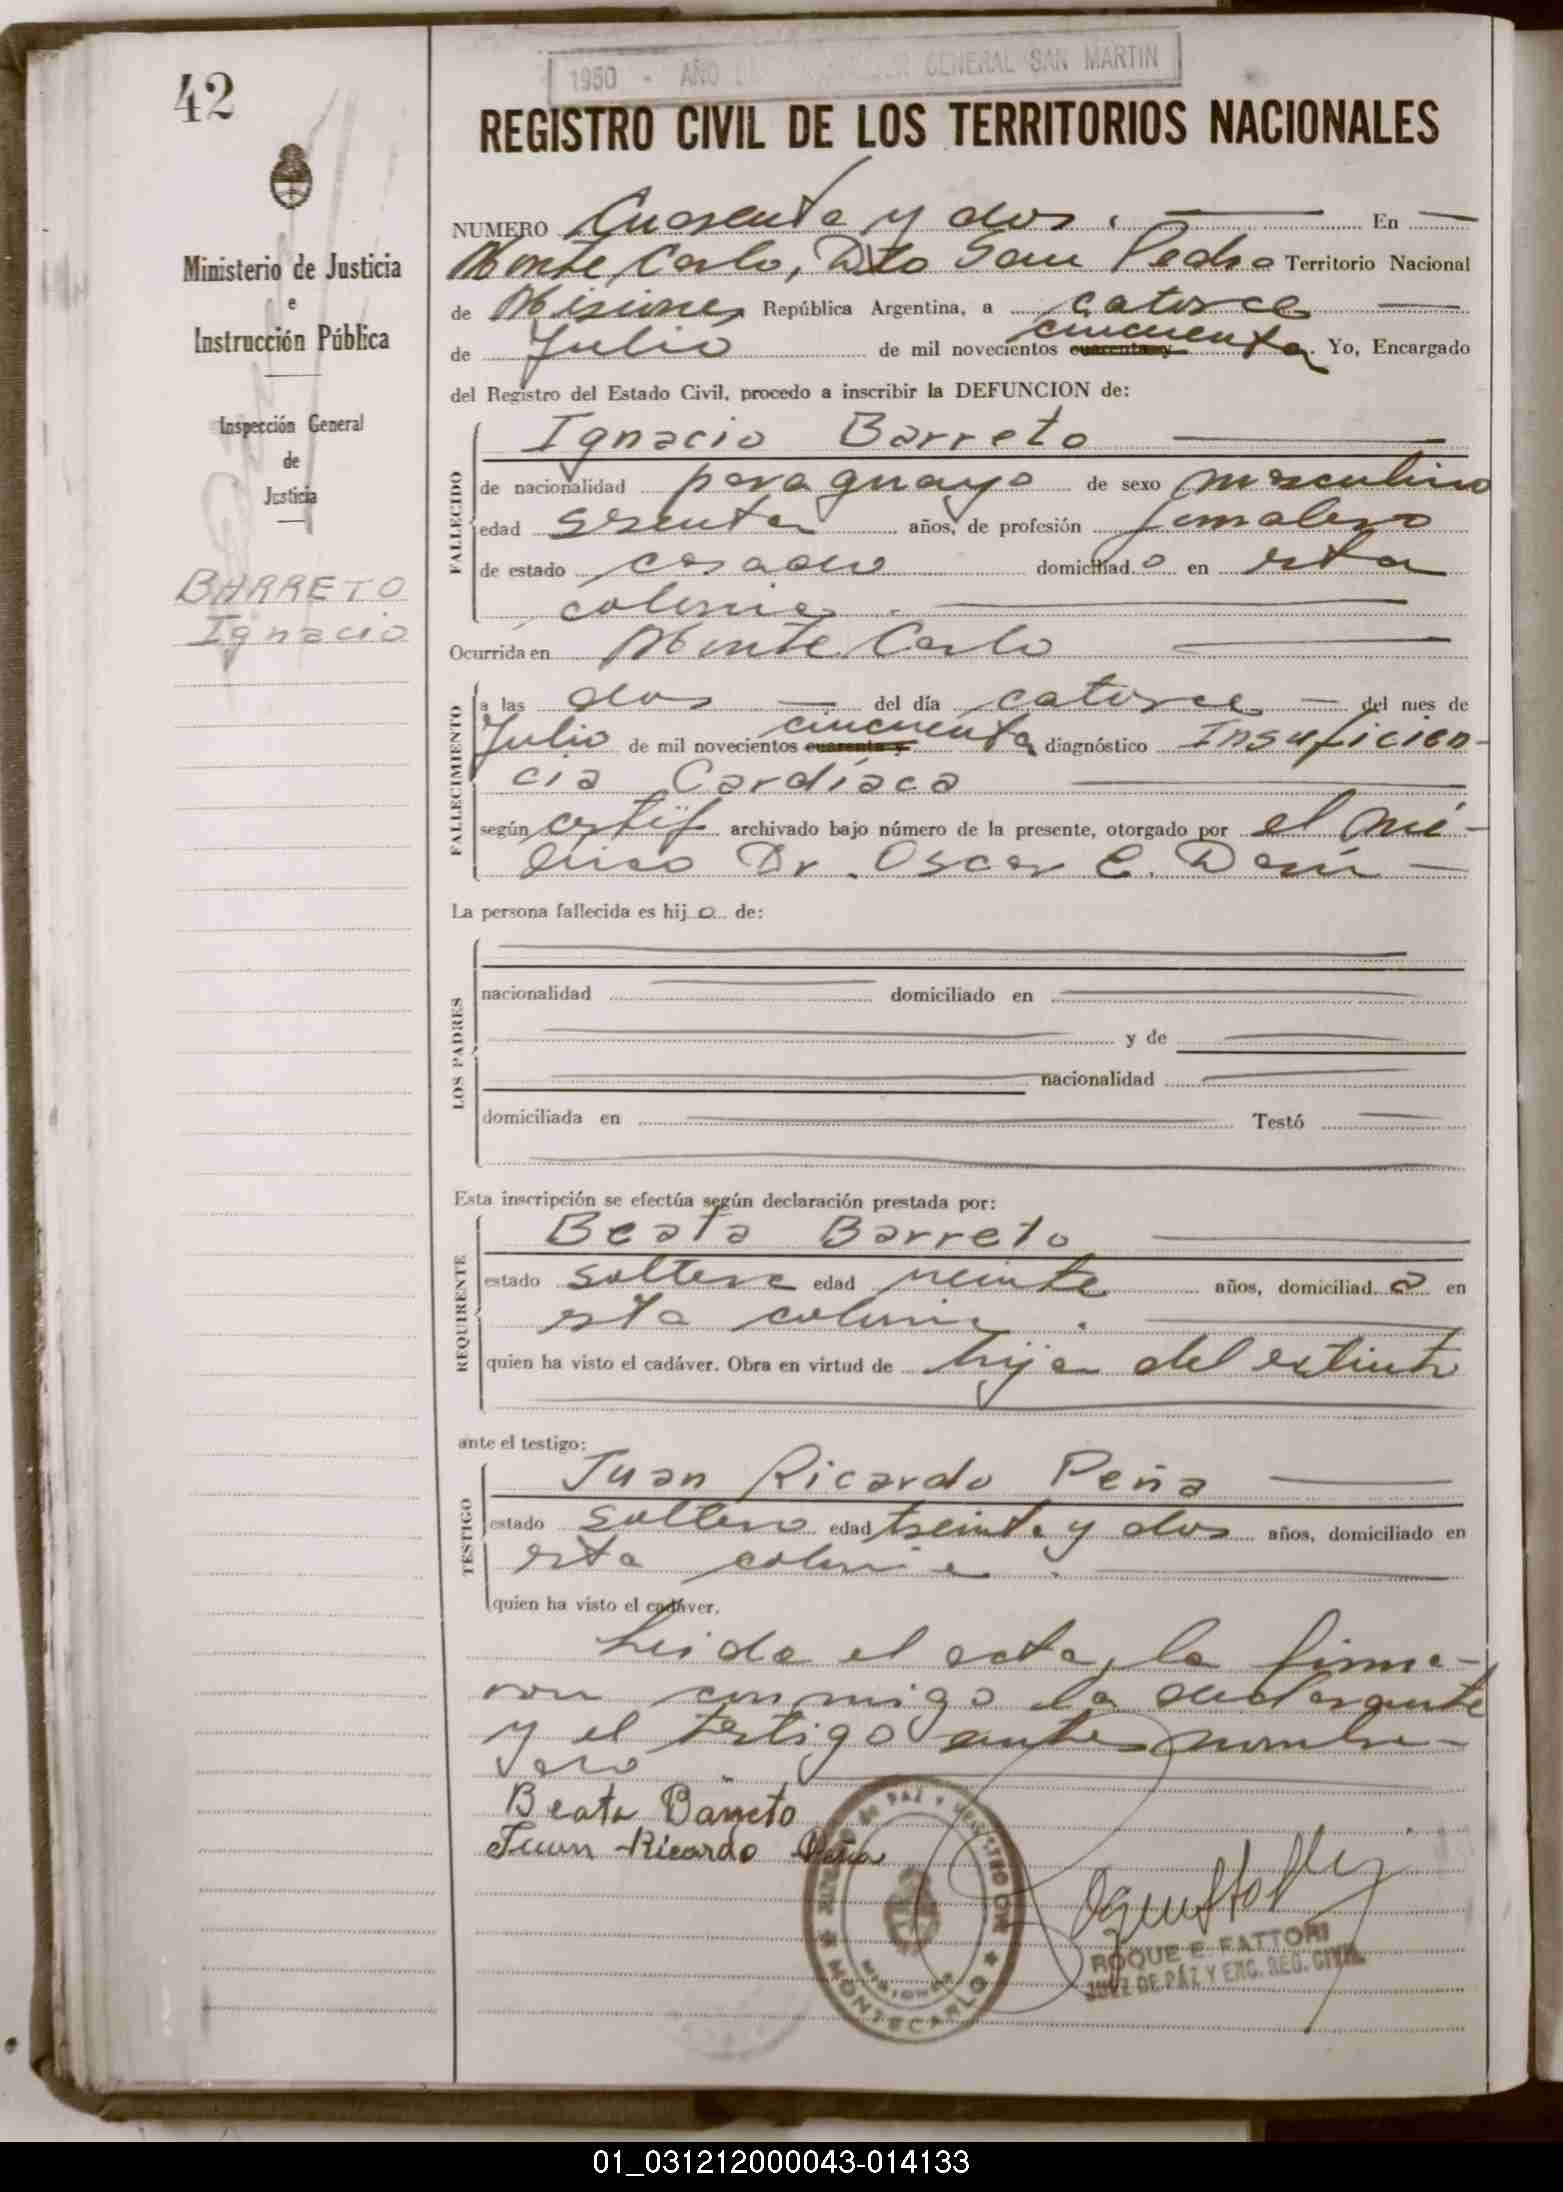 42
1950 - AÑO GENERAL SAN MARTIN
REGISTRO CIVIL DE LOS TERRITORIOS NACIONALES
Ministerio de Justicia
e
Instrucción Pública
Inspección General
de
Justicia
BARRETO
Ignacio
NUMERO Cuarenta y dos. En
Monte Carlo, Dto San Pedro Territorio Nacional
de Misiones República Argentina, a catorce
de Julio de mil novecientos cuarenta y cincuenta. Yo, Encargado
del Registro del Estado Civil, procedo a inscribir la DEFUNCION de:
FALLECIDO
Ignacio Barreto
de nacionalidad paraguayo de sexo masculino
edad sesenta años, de profesión jornalero
de estado casado domiciliad o en esta
colonia.
Ocurrida en Monte Carlo
FALLECIMIENTO
a las dos del día catorce del mes de
Julio de mil novecientos cuarenta y cincuenta diagnóstico Insuficien-
cia Cardíaca
según certif archivado bajo número de la presente, otorgado por el mé-
dico Dr. Oscar C.
La persona fallecida es hij o de:
LOS PADRES
nacionalidad domiciliado en
y de
nacionalidad
domiciliada en Testó
Esta inscripción se efectúa según declaración prestada por:
REQUIRENTE
Beata Barreto
estado soltera edad veinte años, domiciliad a en
esta colonia.
quien ha visto el cadáver. Obra en virtud de hija del extinto
ante el testigo:
TESTIGO
Juan Ricardo Peña
estado soltero edad treinta y dos años, domiciliado en
esta colonia.
quien ha visto el cadáver.
Leida el acta, la firma-
ron conmigo la declarante
y el testigo antes nombra-
do
Beata Barreto
Juan Ricardo Peña
DE PAZ Y REGISTRO CIVIL
MISIONES
MONTECARLO
ROQUE E. FATTORI
JUEZ DE PAZ Y ENC. REG. CIVIL
01_031212000043-014133